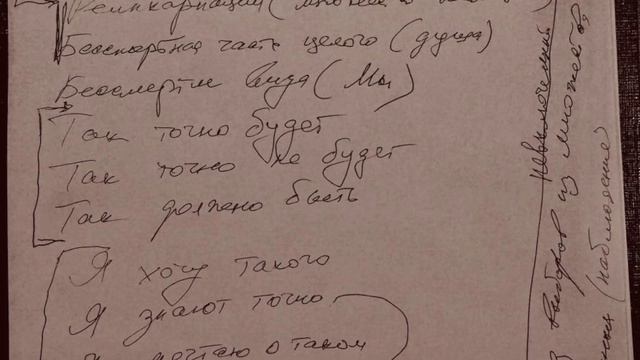 Реинкарнация (
Бессмертная часть целого (душа)
Бессмертие вида (Мы)
Так точно будет
Так точно не будет
Так должно быть
Я хочу такого
Я знают точно
мечтаю о таком
выборов из множеств
(наблюдение)